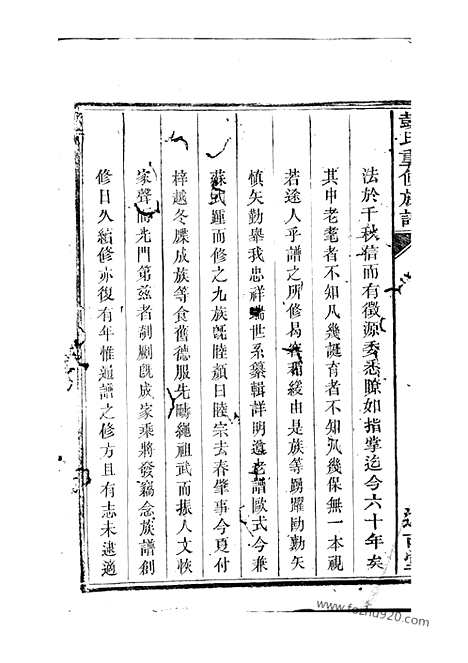 彭氏重修族譜
法於千秋信而有徵源委悉瞭如指掌迄今六十年矣
其中老耄者不知凡幾誕育者不知凡幾保無一本視
若途人乎譜之所修曷容稍緩由是族等踴躍勷勷矢
慎矢勤舉我忠祥端世系纂輯詳明遵老譜歐式今兼
蘇式踵而修之九族旣睦顏曰睦宗去春肇事今夏付
梓越冬牒成族等食舊德服先疇繩祖武而振人文恢
家聲而先門第茲者剞劂旣成家乘將發竊念族譜創
修日久續修亦復有年惟通譜之修方且有志未逮適
www.fozhu920.com